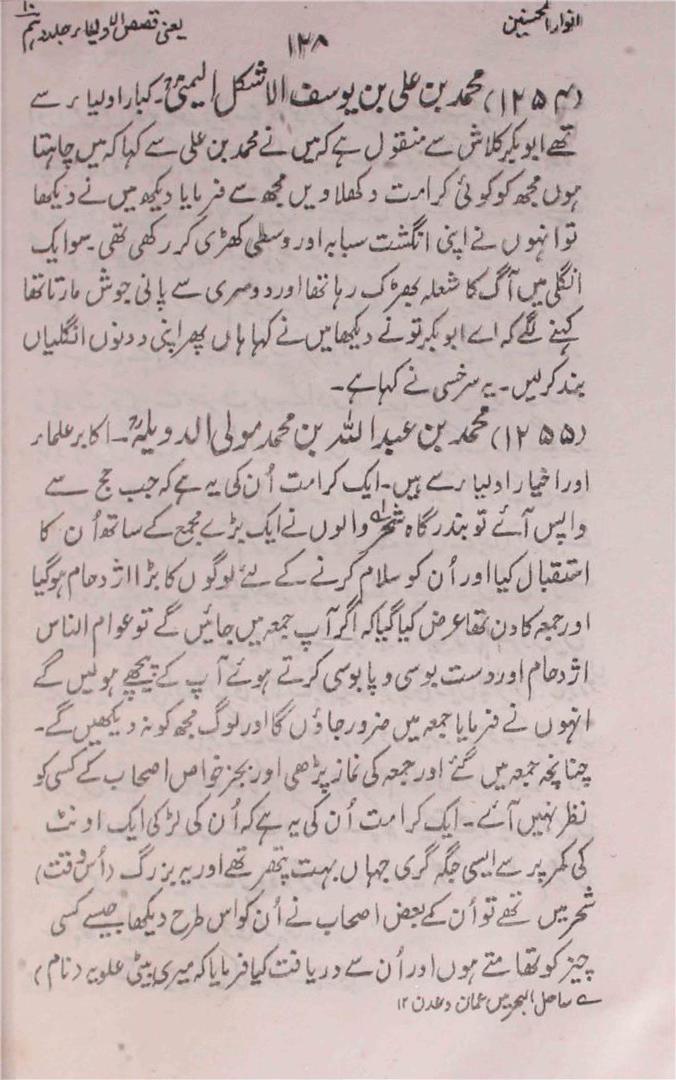 انوار المحسنین
۱۲۸
یعنی قصص الاولیاء جلد دہم ۱۰
(۱۲۵۴) محمد بن علی بن یوسف الاشکل الیمنیؒ۔ کبار اولیاء سے
تھے ابو بکر کلاش سے منقول ہے کہ میں نے محمد بن علی سے کہا کہ میں چاہتا
ہوں مجھ کو کوئی کرامت دکھلاویں مجھ سے فرمایا دیکھ میں نے دیکھا
تو انہوں نے اپنی انگشت سبابہ اور وسطی کھڑی کر رکھی تھی۔ سو ایک
انگلی میں آگ کا شعلہ بھڑک رہا تھا اور دوسری سے پانی جوش مارتا تھا
کہنے لگے کہ اے ابو بکر تو نے دیکھا میں نے کہا ہاں پھر اپنی دونوں انگلیاں
بند کرلیں۔ یہ سرخسی نے کہا ہے۔
(۱۲۵۵) محمد بن عبد اللہ بن محمد مولی الدویلہؒ۔ اکابر علماء
اور اخیار اولیاء سے ہیں۔ ایک کرامت اُن کی یہ ہے کہ جب حج سے
واپس آئے تو بندرگاہ شحر والوں نے ایک بڑے مجمع کے ساتھ اُن کا
استقبال کیا اور اُن کو سلام کرنے کے لئے لوگوں کا بڑا اژدحام ہوگیا
اور جمعہ کا دن تھا عرض کیا گیا کہ اگر آپ جمعہ میں جائیں گے تو عوام الناس
اژدحام اور دست بوسی و پابوسی کرتے ہوئے آپ کے پیچھے ہولیں گے
انہوں نے فرمایا جمعہ میں ضرور جاؤں گا اور لوگ مجھ کو نہ دیکھیں گے۔
چنانچہ جمعہ میں گئے اور جمعہ کی نماز پڑھی اور بجز خواص اصحاب کے کسی کو
نظر نہیں آئے۔ ایک کرامت اُن کی یہ ہے کہ اُن کی لڑکی ایک اونٹ
کی کمر پر سے ایسی جگہ گری جہاں بہت پتھر تھے اور یہ بزرگ (اُس وقت)
شحر میں تھے تو اُن کے بعض اصحاب نے اُن کو اس طرح دیکھا جیسے کسی
چیز کو تھامتے ہوں اور اُن سے دریافت کیا فرمایا کہ میری بیٹی علویہ (نام)
ے ساحل البحر بین عمان و عدن ۱۲